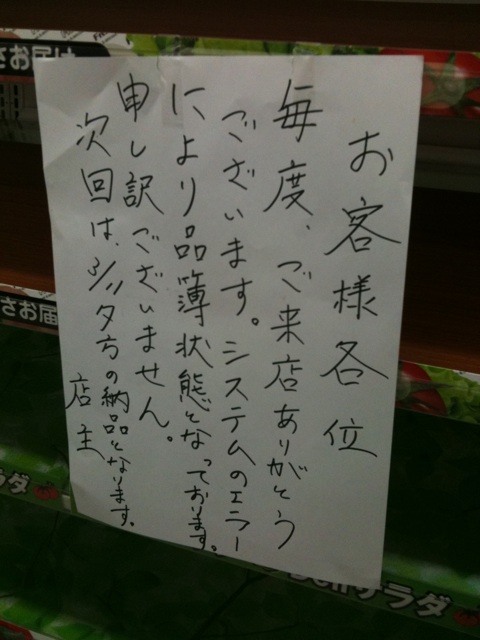 お客様各位
毎度、ご来店ありがとう
ございます。システムのエラー
により品簿状態となっております。
申し訳ございません。
次回は、3/11夕方の納品となります。
店主
さお届け
さお届
サラダ